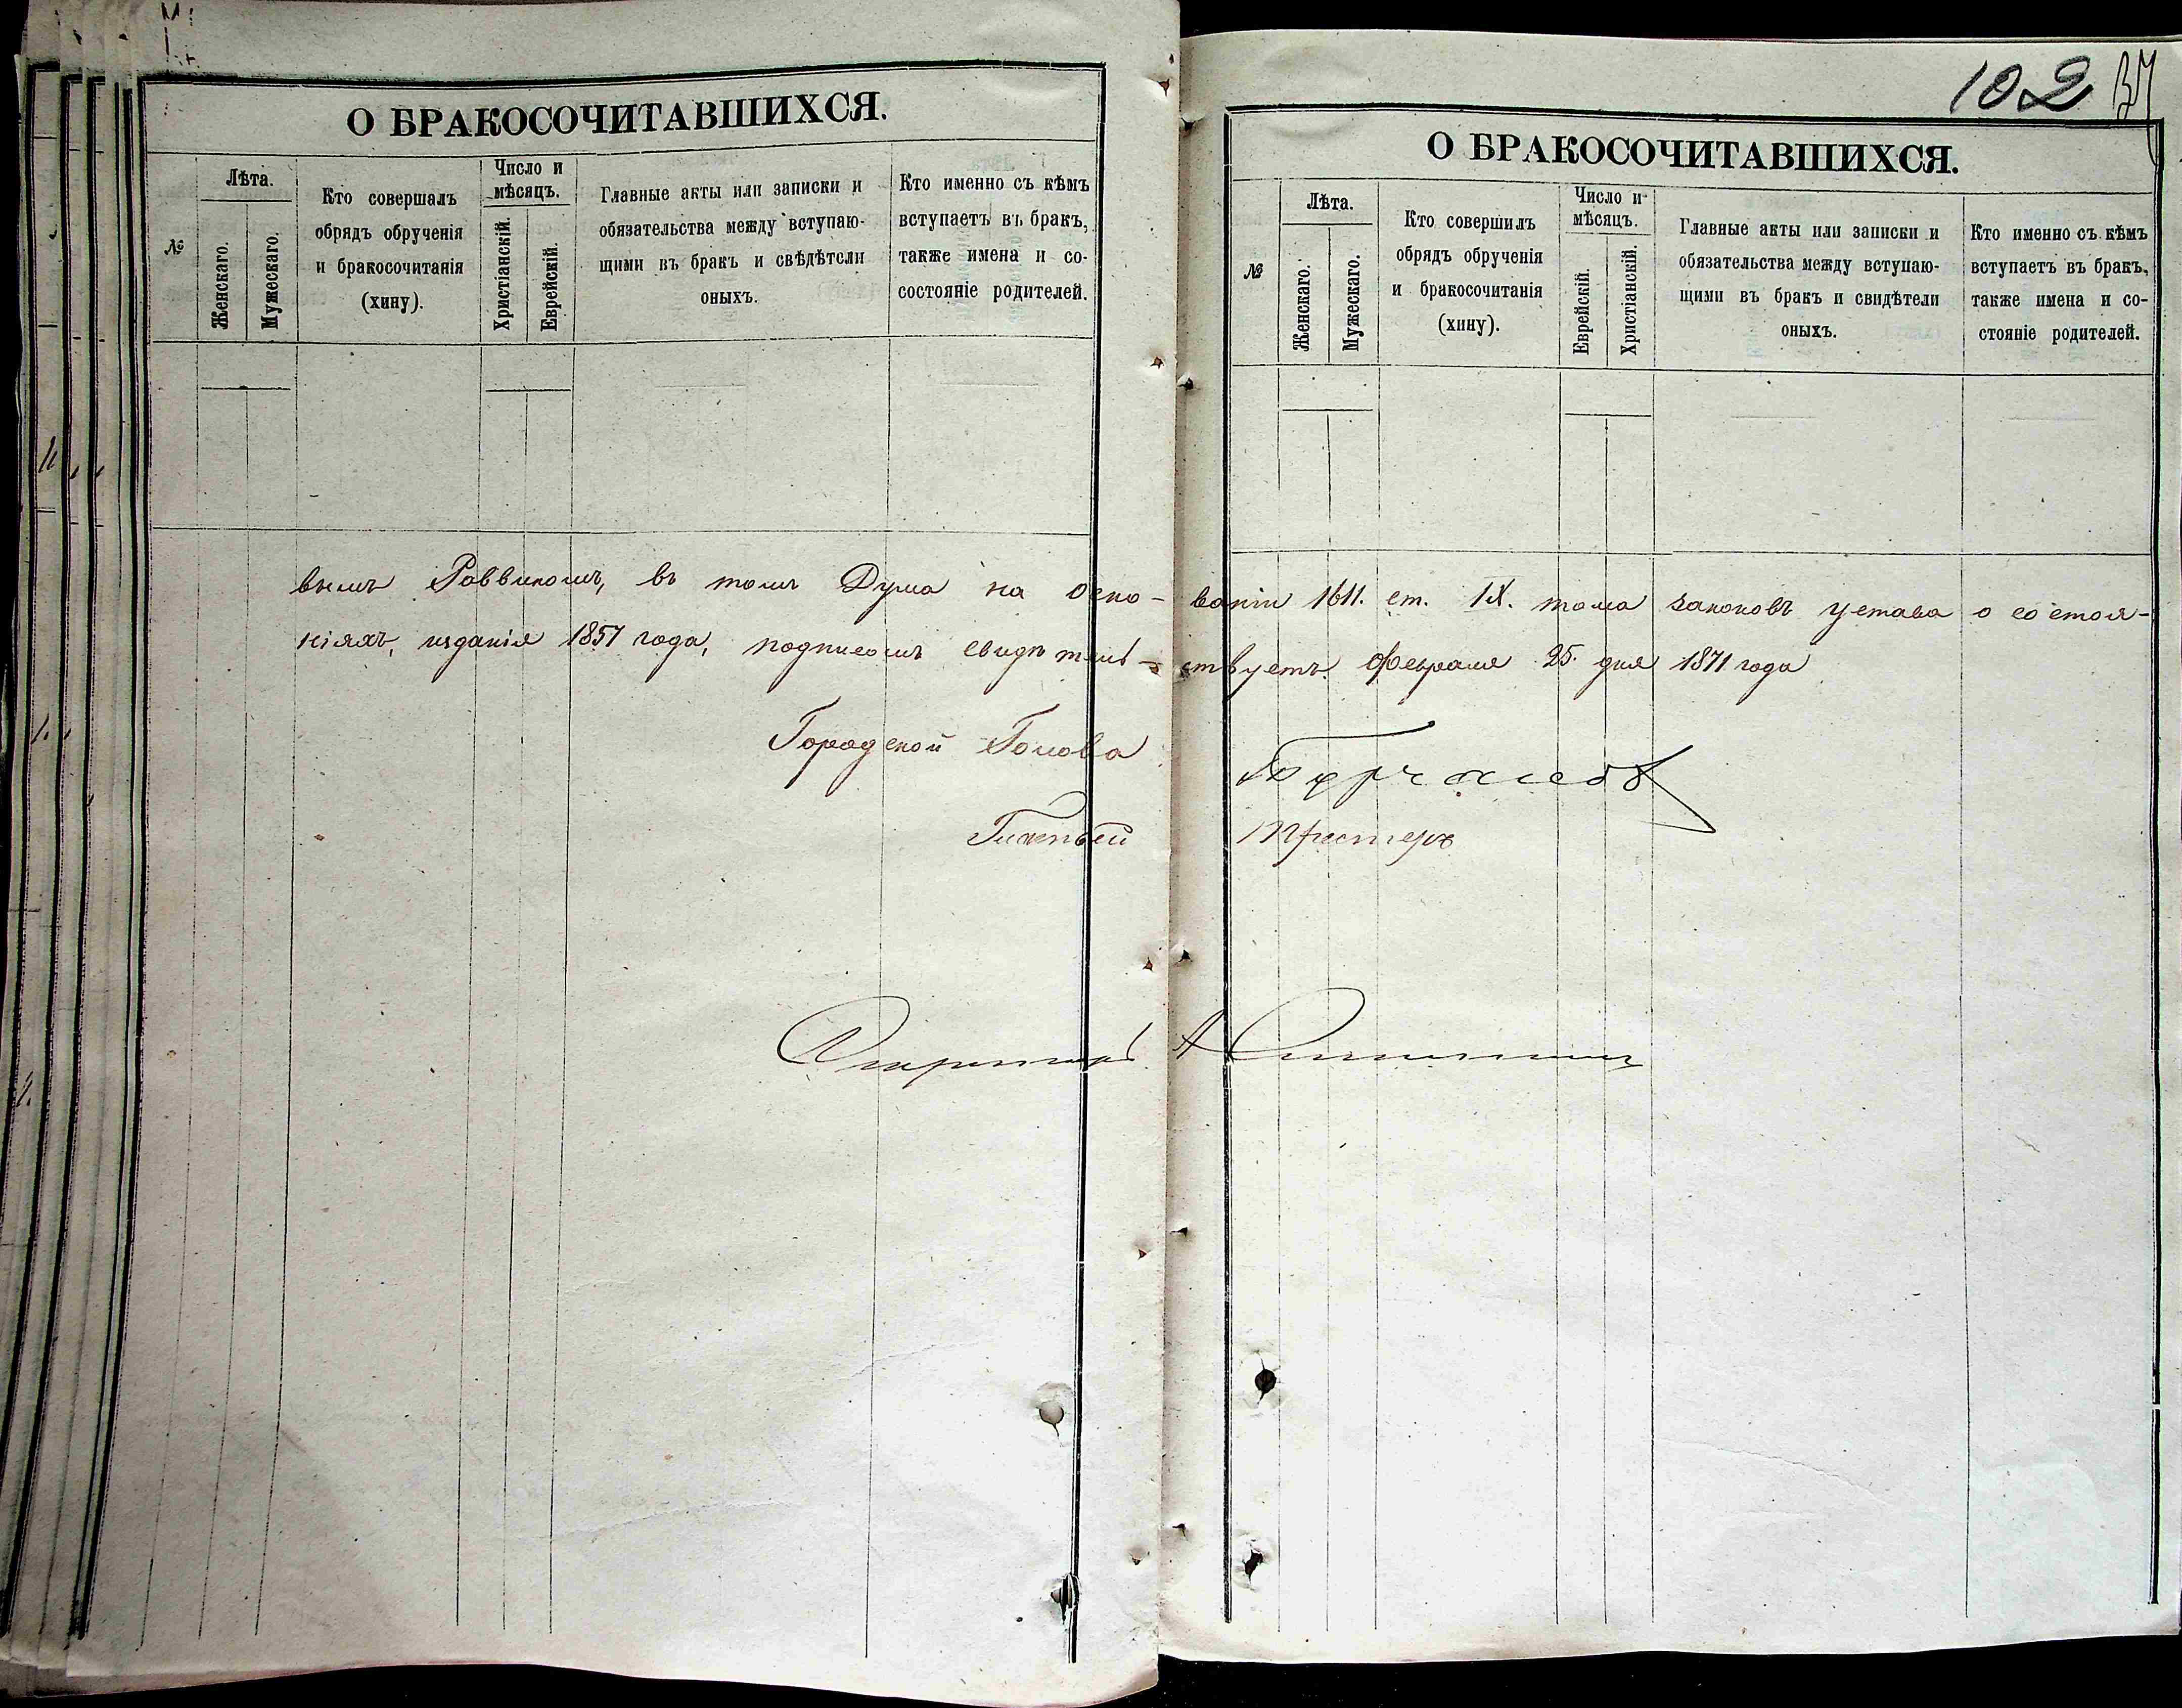 О БРАКОСОЧИТАВШИХСЯ.
№
Лѣта.
Женскаго.
Мужескаго.
Кто совершалъ
обрядъ обрученія
и бракосочитанія
(хину).
Число и
мѣсяцъ.
Христіанскій.
Еврейскій.
Главные акты или записки и
обязательства между вступаю-
щими въ бракъ и свѣдѣтели
оныхъ.
Кто именно съ кѣмъ
вступаетъ въ бракъ,
также имена и со-
состояніе родителей.
102
О БРАКОСОЧИТАВШИХСЯ.
№
Лѣта.
Женскаго.
Мужескаго.
Кто совершилъ
обрядъ обрученія
и бракосочитанія
(хину).
Число и
мѣсяцъ.
Еврейскій.
Христіанскій.
Главные акты или записки и
обязательства между вступаю-
щими въ бракъ и свидѣтели
оныхъ.
Кто именно съ кѣмъ
вступаетъ въ бракъ,
также имена и со-
стояніе родителей.
вымъ Раввиномъ, въ томъ Дума на осно- ваніи 1611. ст. IX. тома законовъ устава о состоя-
ніяхъ, изданія 1857 года, подписомъ свидѣтель- ствуетъ. Февраля 25. дня 1871 года
Городской Голова
Гласный
Секретарь А